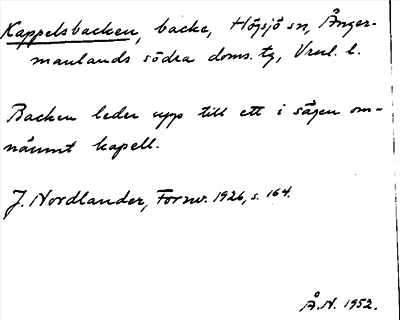 Kappelsbacken, backe, Högsjö sn, Ånger-
manlands södra doms. tg, Vnl. l.
Backen leder upp till ett i sägen om-
nämnt kapell.
J. Nordlander, Fornv. 1926, s. 164.
Å.N. 1952.